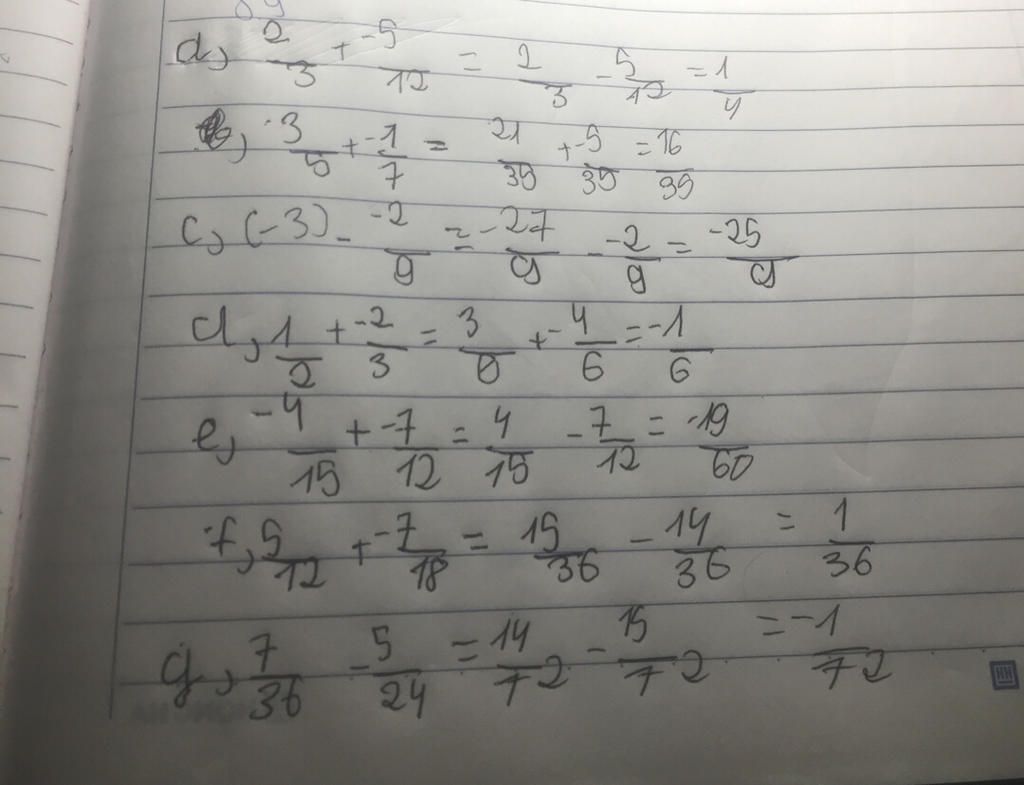 a, 2/3 + -5/12 = 2/3 - 5/12 = 1/4
b, 3/5 + -1/7 = 21/35 + -5/35 = 16/35
c, (-3) - -2/9 = -27/9 - -2/9 = -25/9
d, 1/2 + -2/3 = 3/6 + -4/6 = -1/6
e, -4/15 + -7/12 = 4/15 - 7/12 = -19/60
f, 5/12 + -7/18 = 15/36 - 14/36 = 1/36
g, 7/36 - 5/24 = 14/72 - 15/72 = -1/72